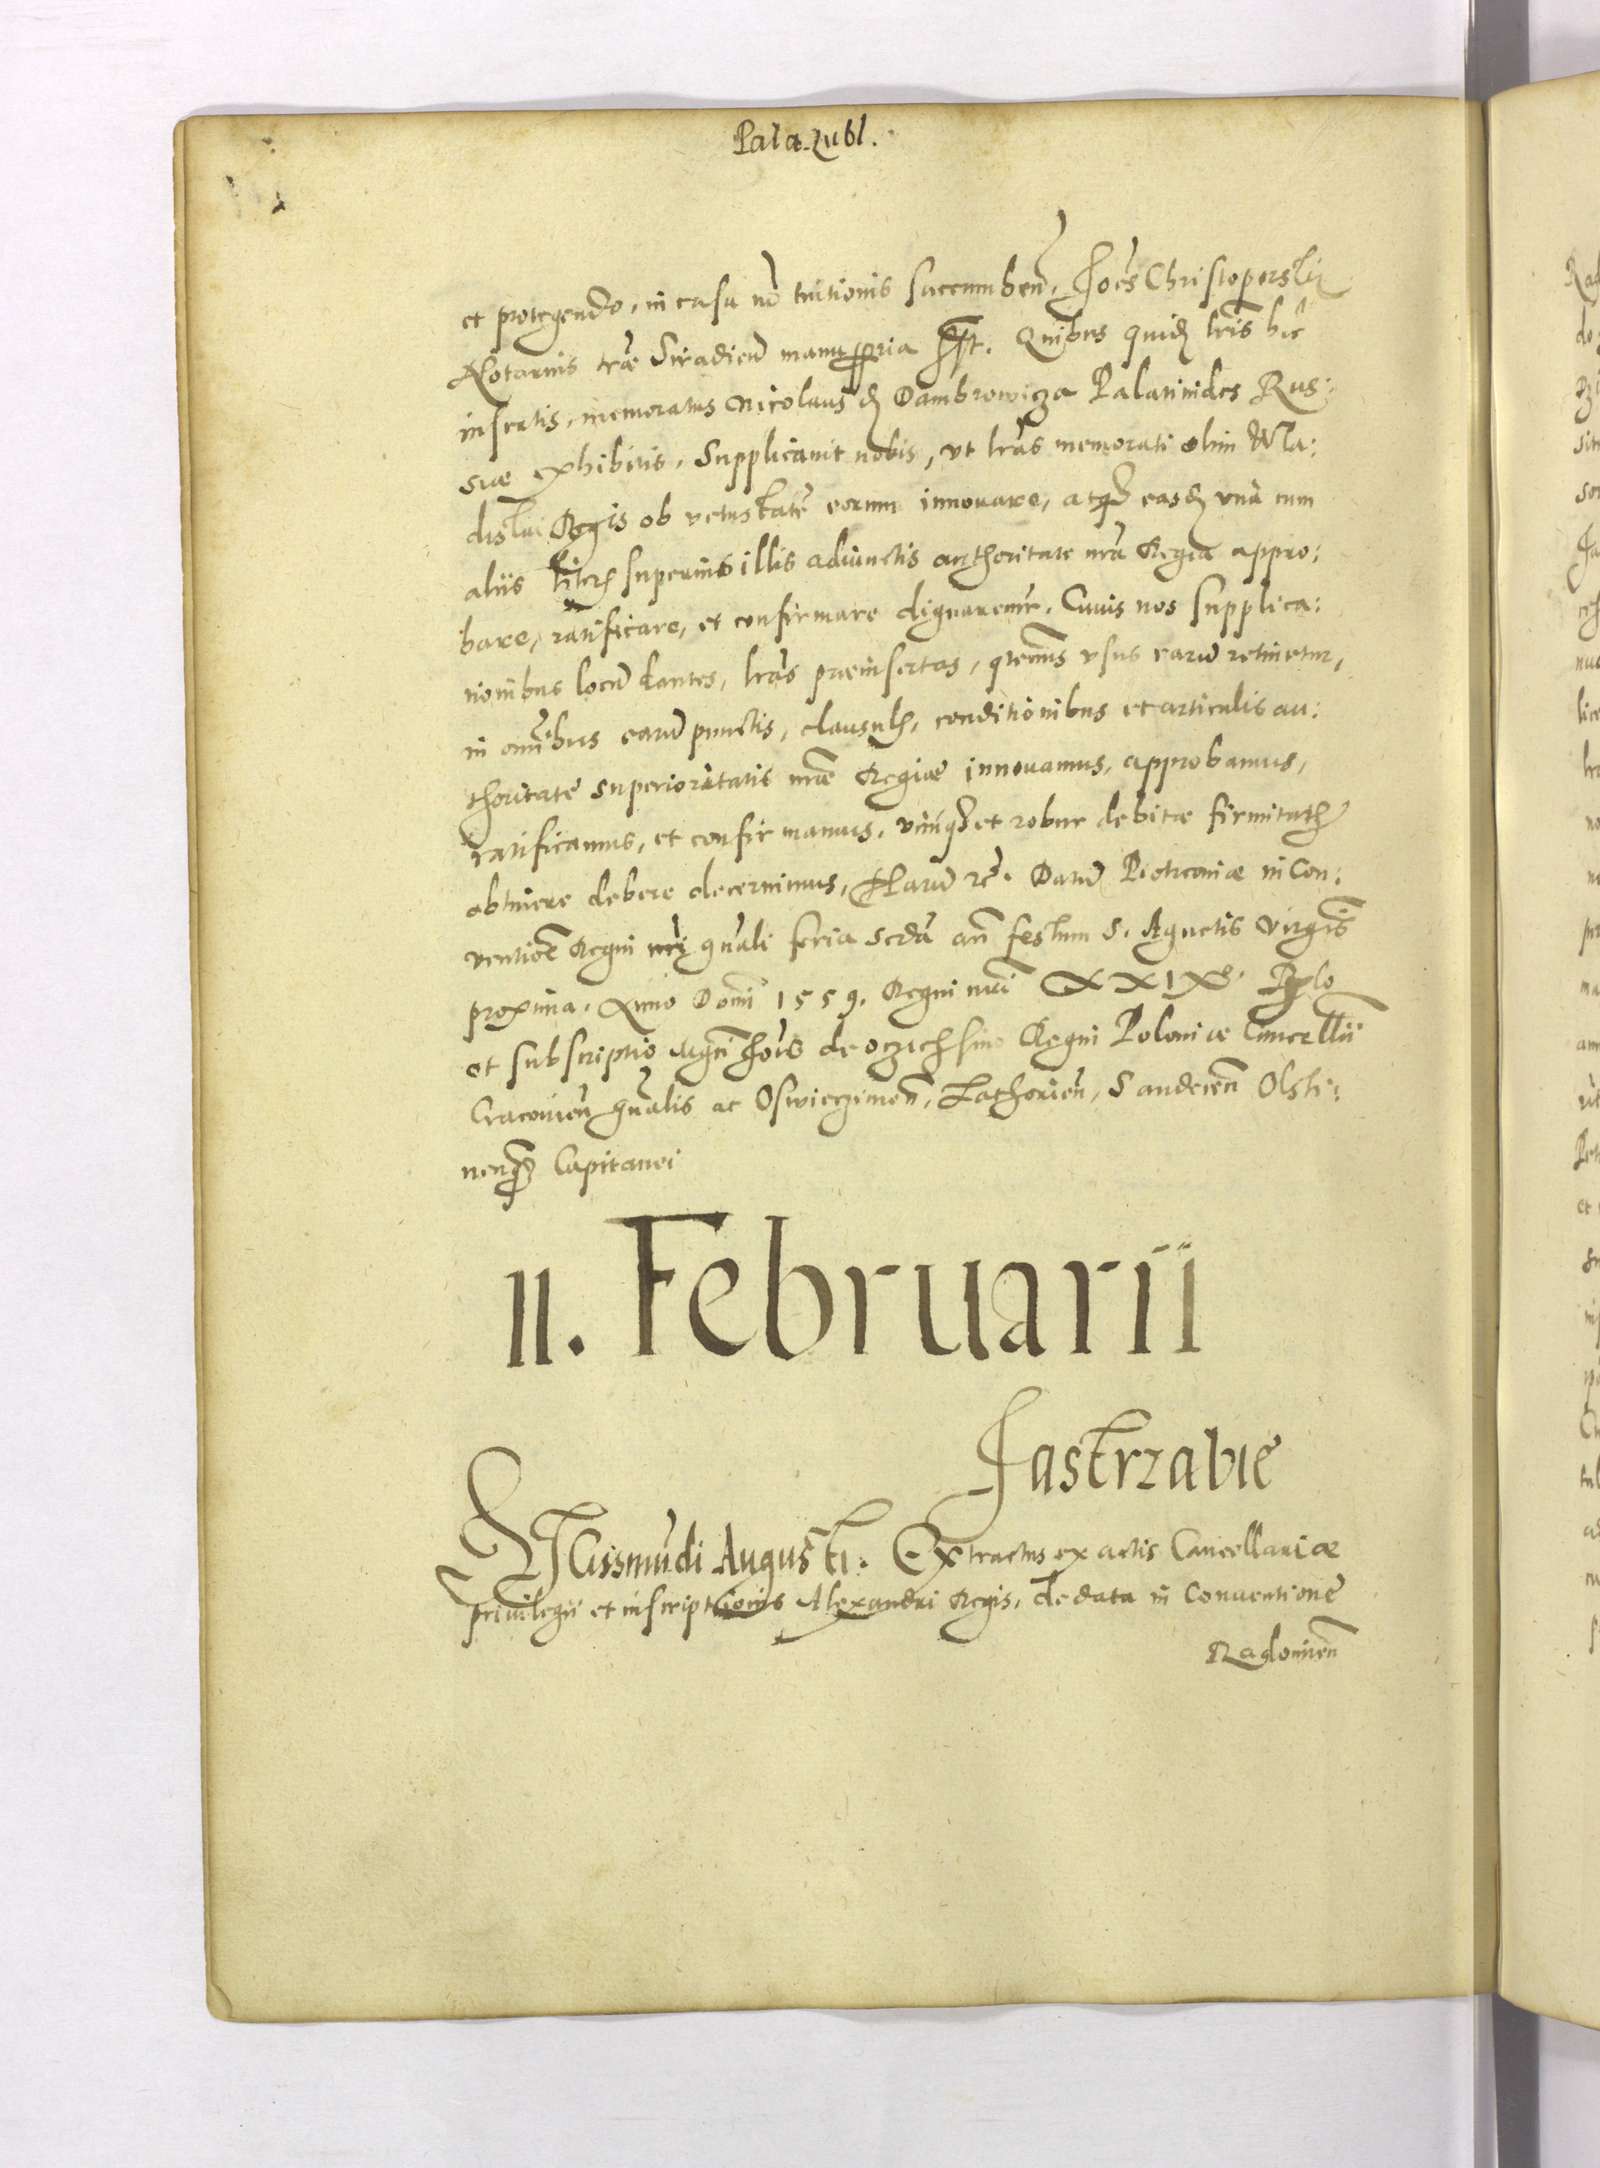 Pala. Lubl.
et protegendo, in casu nō tuitionis succumben̄. Joēs Christoporski
Notarius trae Siradien̄ manu ppria sspt. Quibus quidē lris hic
insertis, memoratus Nicolaus de Dambrowicza Palatinides Rus:
siae exhibitis, Supplicavit nobis, vt lras memorati olim Wla:
dislai Regis ob vetustatē eorum innovare, atq̃ easdē vna cum
aliis literis superius illis adiunctis authoritate nra Regia appro:
bare, ratificare, et confirmare dignaremur. Cuius nos supplica:
tionibus locū dantes, lras praeinsertas, qtenus vsus earū retinetur,
in omībus earū punctis, clausulis, conditionibus et articulis au:
thoritate superioritatis nrae Regiae innovamus, approbamus,
ratificamus, et confirmamus, vimq̃ et robur debitae firmitatis
obtinere debere decernimus, Harū rē. Datū Piotrconiae in Con:
ventiōe Regni nri gn̄ali feria scdā an̄ festum S. Agnetis virginis
proxima, Anno Domī 1559. Regni nri XXIXo.
et subscriptio Mgci Jois de Oczieschino Regni Poloniae Cancellii
Cracovien̄ gn̄alis ac Oswieczimen̄, Zathorien̄, Sandecen̄ Olsti:
nenq̃ Capitanei
11. Februarii
Jastrzabie
Sigismūdi Augusti. Extractus ex actis Cancellariae
privilegii et inscriptionis Alexandri Regis, de data in Conventione
Radomien̄